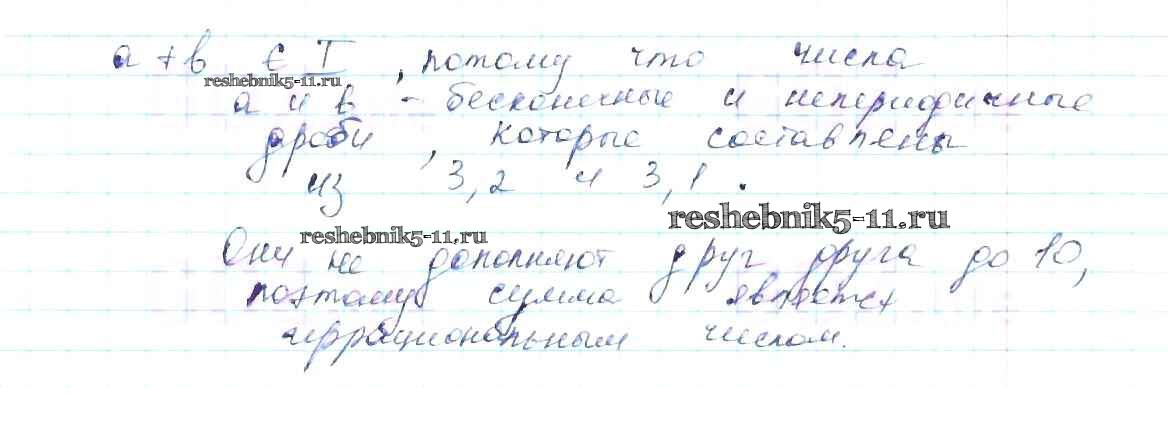 a + b ∈ I, потому что числа
reshebnik5-11.ru
a и b - бесконечные и непериодичные
дроби, которые составлены
из 3,2 и 3,1.
reshebnik5-11.ru
reshebnik5-11.ru
Они не дополняют друг друга до 10,
поэтому сумма является
иррациональным числом.